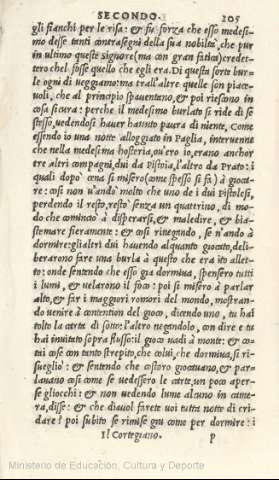 SECONDO. 105
gli fianchi per le risa: & fu forza che esso medesi-
mo desse tanti contrasegni della sua nobiltà, che pur
in ultimo queste signore (ma con gran fatica) credet-
tero chel fosse quello che egli era. Di questa sorte bur-
le ogni dì veggiamo: ma trall'altre quelle son piace-
uoli, che al principio spauentano, & poi riescono in
cosa sicura: perche il medesimo burlato si ride di se
stesso, uedendosi hauer hauuto paura di niente. Come
essendo io una notte alloggiato in Paglia, interuenne
che nella medesima hosteria, ou'ero io, erano anchor
tre altri compagni, dui da Pistoia, l'altro da Prato: i
quali dopo cena si misero (come spesso si fa) à gioca-
re: cosi non u'andò molto che uno de i dui Pistolesi,
perdendo il resto, restò senza un quattrino, di mo-
do che cominciò à disperarsi, & maledire, & bia-
stemare fieramente: & cosi rinegando, se n'andò à
dormire: glialtri dui hauendo alquanto giocato, deli-
berarono fare una burla à questo che era ito allet-
to: onde sentendo che esso gia dormiua, spensero tutti
i lumi, & uelarono il foco: poi si misero à parlar
alto, & far i maggiori romori del mondo, mostran-
do uenire à contention del gioco, dicendo uno, tu hai
tolto la carta di sotto: l'altro negandolo, con dire e tu
hai inuitato sopra flusso: il gioco uadi à monte: & co-
tai cose con tanto strepito, che colui, che dormiua, si ri-
suegliò: & sentendo che costoro giocauano, & par-
lauano cosi come se uedessero le carte, un poco aper-
se gliocchi: & non uedendo lume alcuno in came-
ra, disse: & che diauol farete uoi tutta notte di cri-
dare? poi subito se rimise giu come per dormire: i
Il Cortegiano. P
Ministerio de Educación, Cultura y Deporte